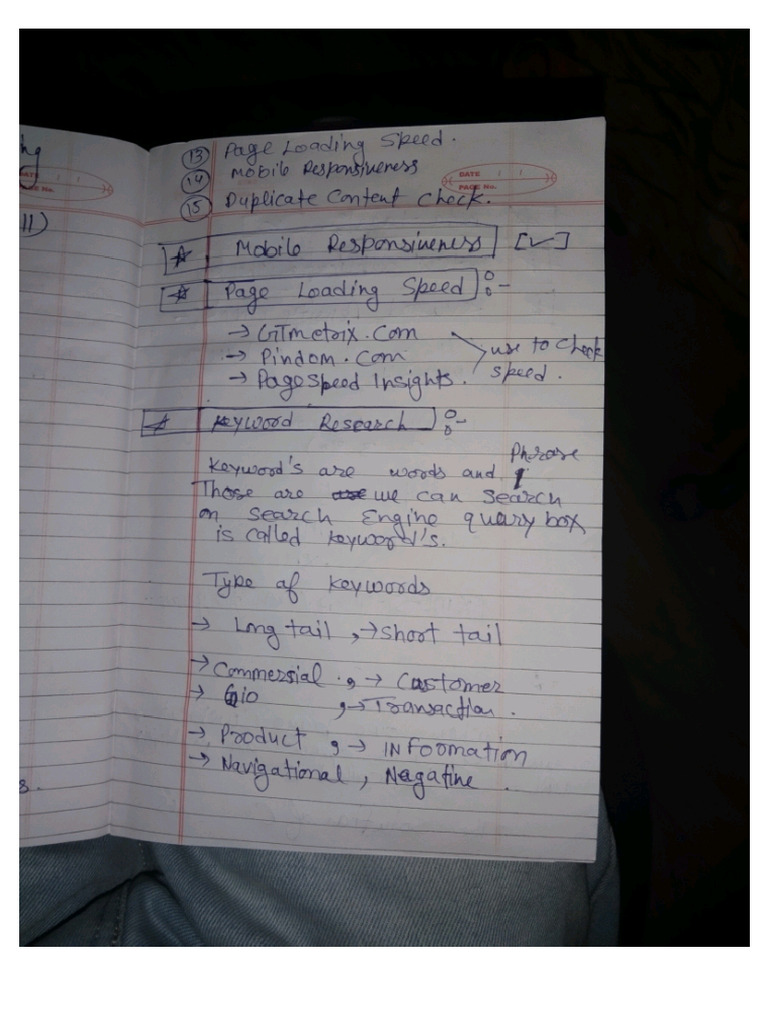 ng
11)
s.
(13) Page Loading Speed.
(14) Mobile Responsiveness
DATE / /
PAGE No.
(15) Duplicate Content Check.
☆ Mobile Responsiveness [✓]
☆ Page Loading Speed :-
→ GTmetrix.com
→ Pindom.com
→ Pagespeed Insights.
use to check
speed.
☆ Keyword Research :-
Keyword's are words and Phrase
Those are we can search
on search Engine quary box
is called keyword's.
Type of keywords
→ Long tail , → short tail
→ Commersial , → Customer
→ Gio , → Transaction.
→ Product , → INfoomation
→ Navigational , Negative .